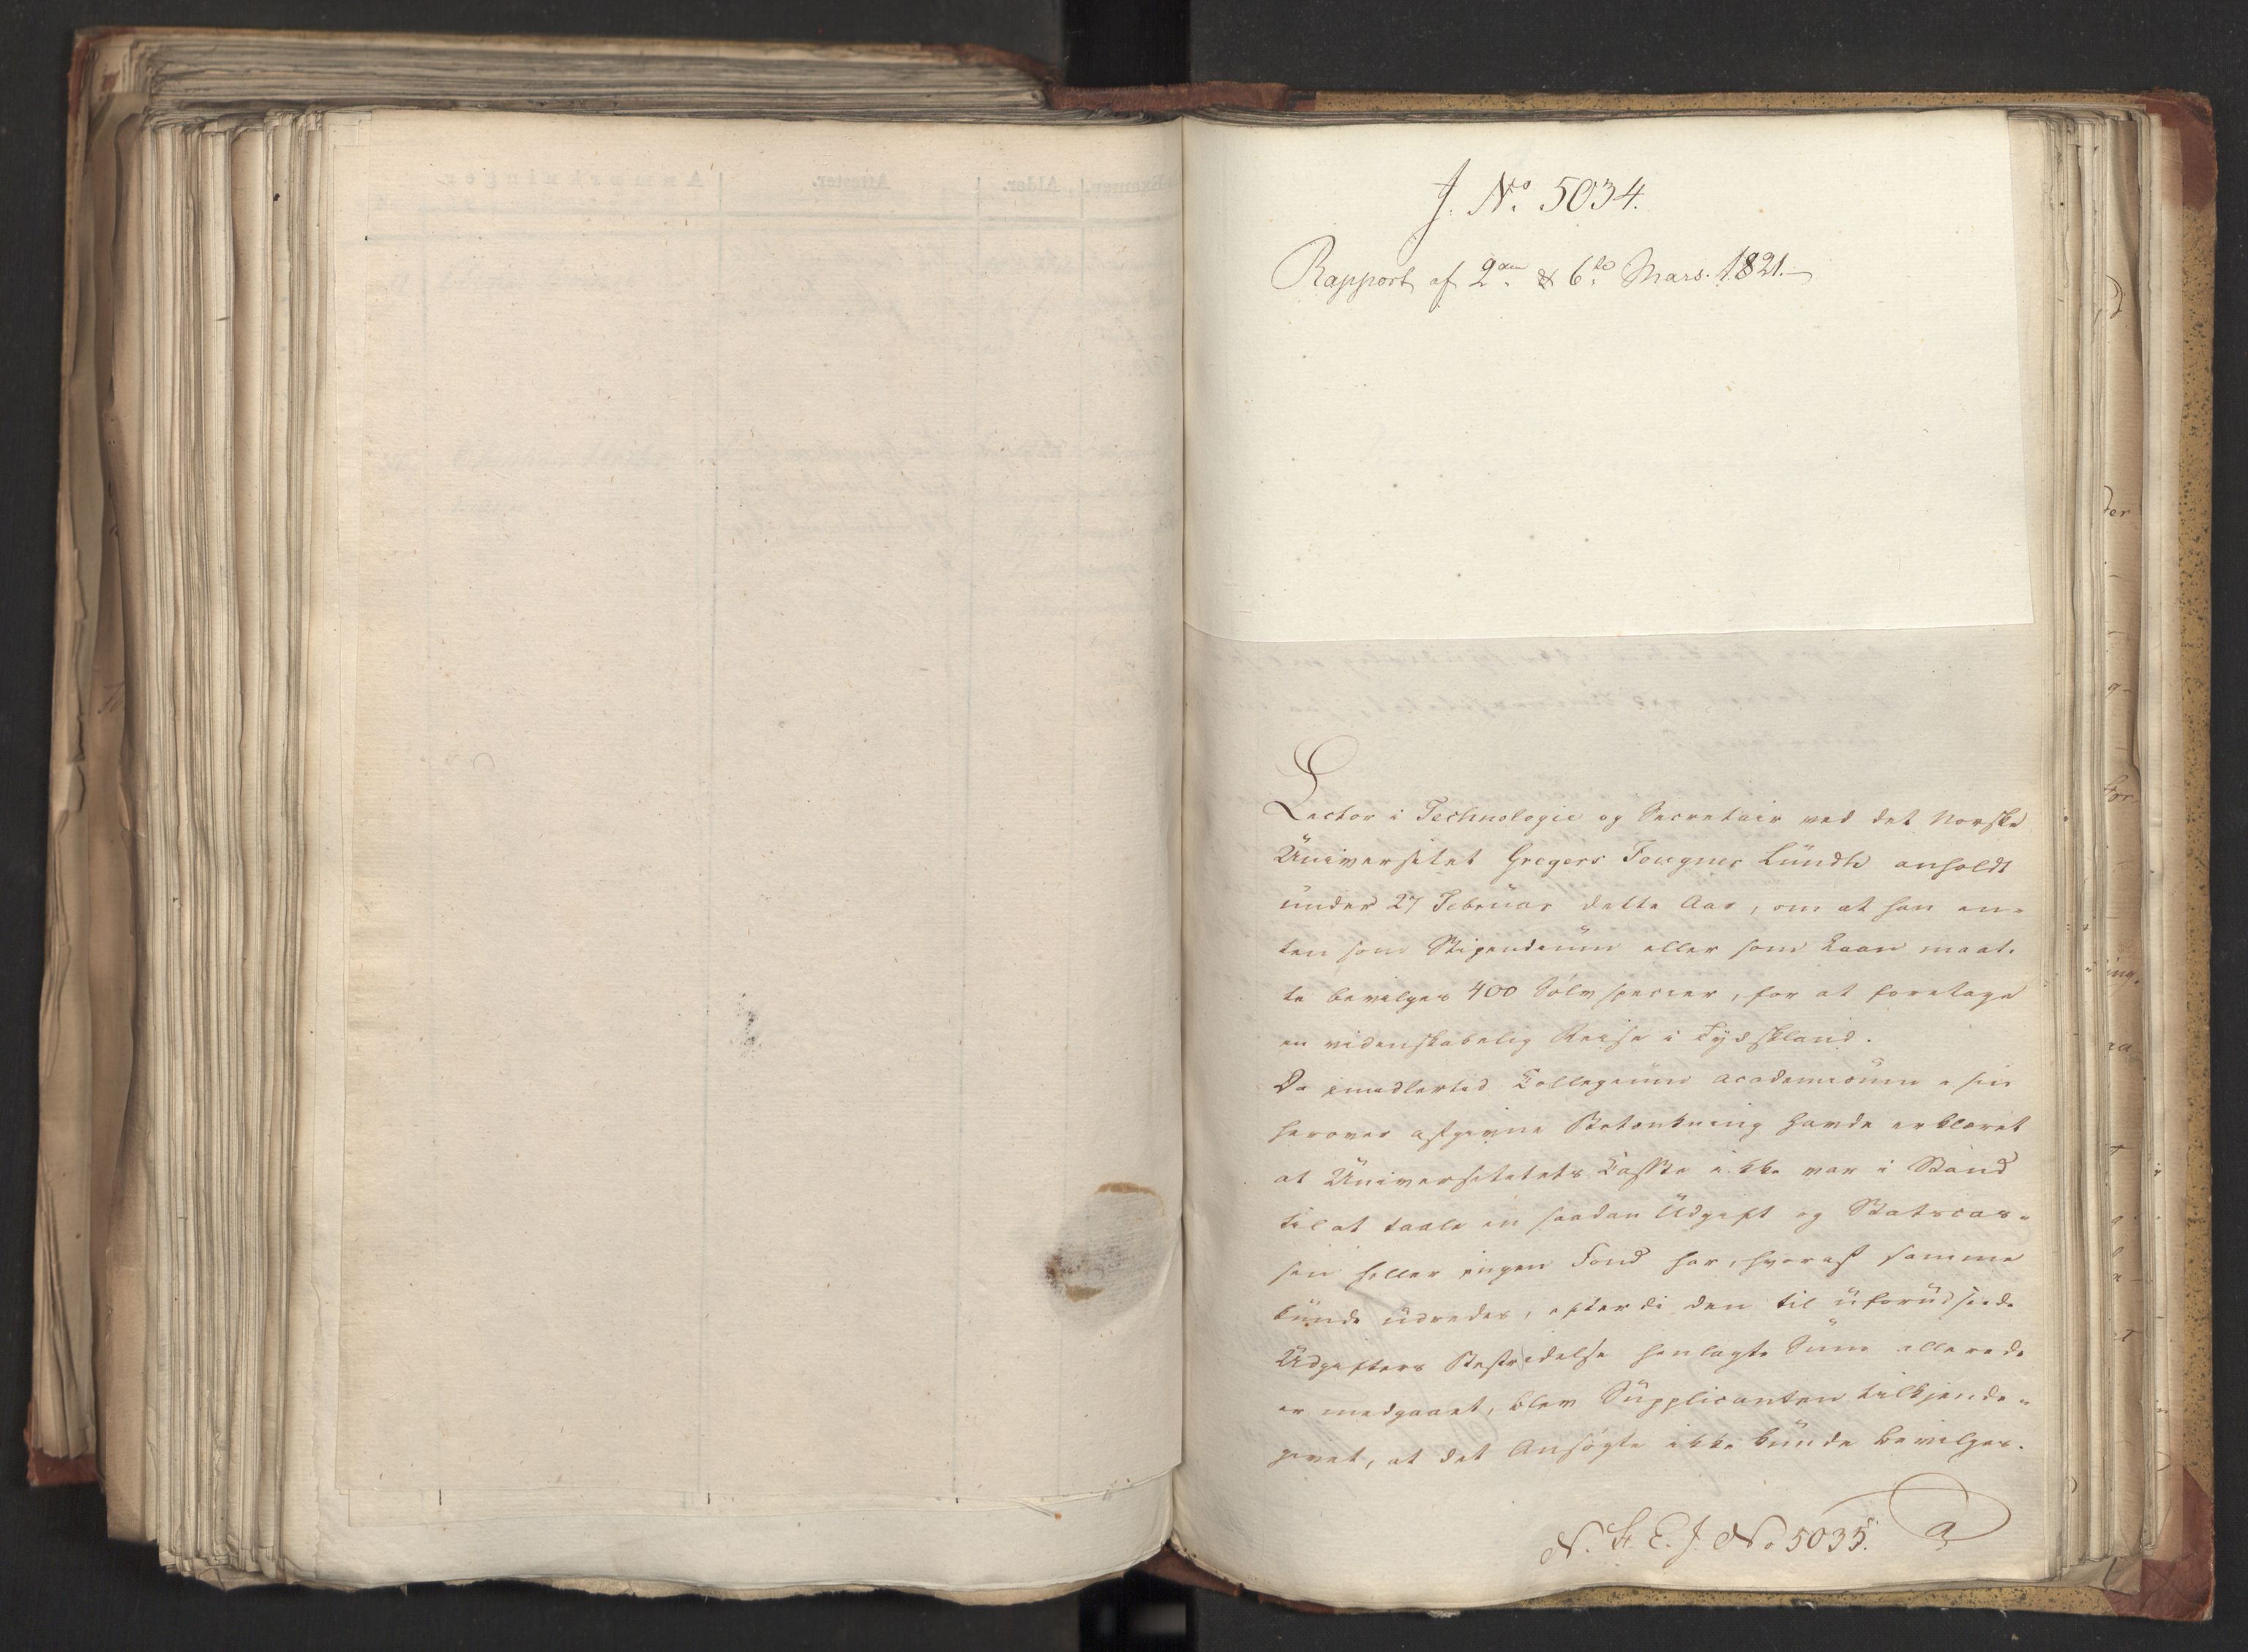 J. No. 5034.
Rapport af 2den & 6te Mars. 1821.
Lector i Technologie og Secretair ved det Norske
Universitet Gregers Fougner Lundh anholdt
under 27 Februar dette Aar, om at han en-
ten som Stipendium eller som Laan maat-
te bevilges 400 Sølvspecier, for at foretage
en videnskabelig Reise i Tydskland.
Da imidlertid Collegium academicum i sin
herover afgivne Betænkning havde erklæret
at Universitetets Casse ikke var i Stand
til at taale en saadan Udgift og Statscas-
sen heller ingen Fond har, hvoraf samme
kunde udredes, efterdi den til uforudseede
Udgifters Bestridelse henlagte Sum allerede
er medgaaet, blev Supplicanten tilkjende-
givet, at det Ansøgte ikke kunde bevilges.
N. St. E. J. No 5035. a